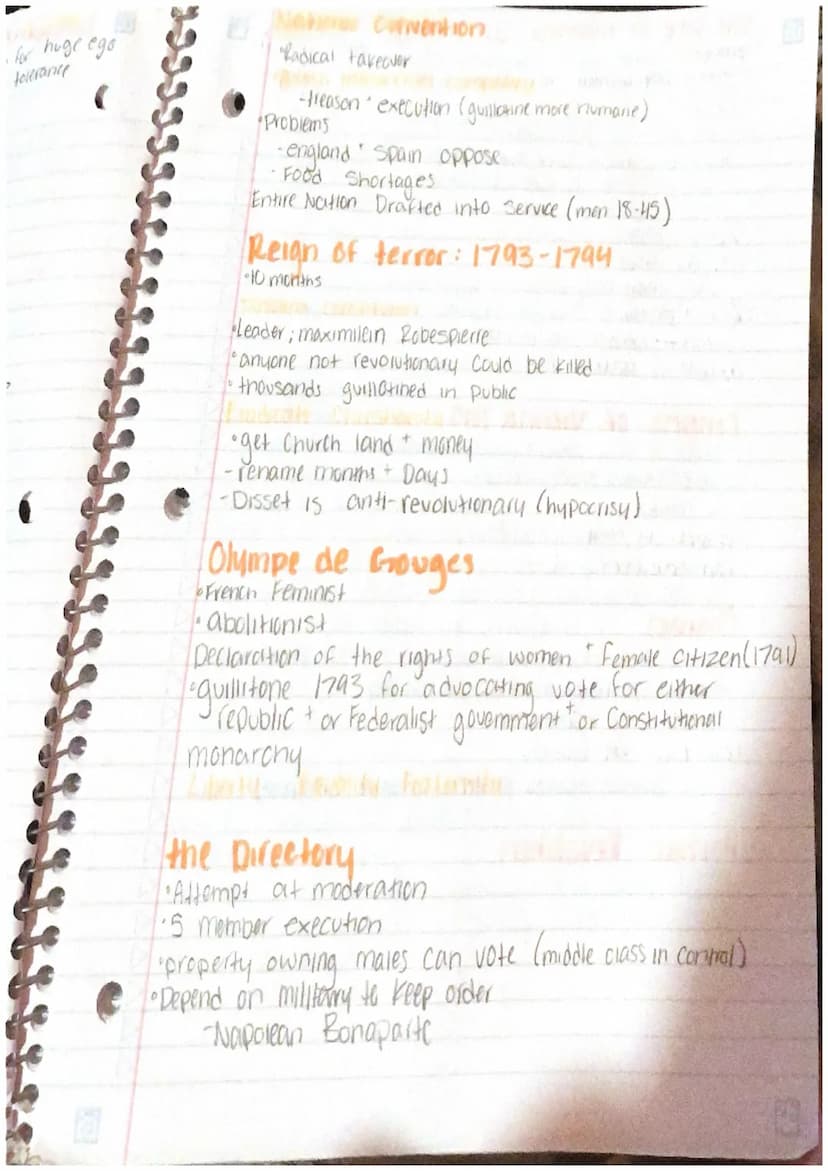 for huge ego
tolerance
National Convention
•Radical takeover
-treason + execution (guillotine more humane)
•Problems
-england + Spain oppose
- Food Shortages
Entire Nation Drafted into Service (men 18-45)
Reign of terror: 1793-1794
•10 months
•Leader; maximilein Robespierre
•anyone not revolutionary could be killed
•thousands guillotined in public
•get Church land + money
-rename months + Days
-Disset is anti-revolutionary (hypocrisy)
Olympe de Gouges
•French Feminist
•abolitionist
Declaration of the rights of women + Female citizen (1791)
•guillitone 1793 for advocating vote for either
republic + or Federalist government + or Constitutional
monarchy
the Directory
•Attempt at moderation
•5 member execution
•property owning males can vote (middle class in control)
•Depend on military to keep order
-Napolean Bonaparte